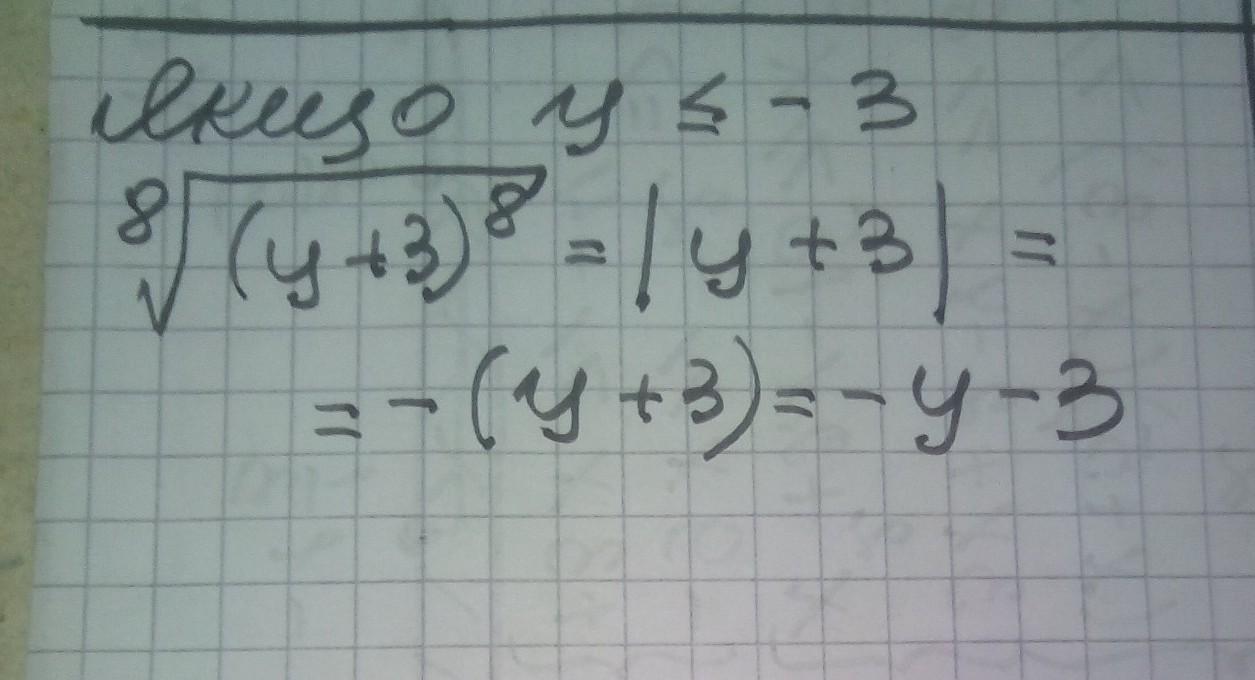 Якщо y ≤ - 3
⁸√(y+3)⁸ = |y + 3| =
= - (y + 3) = - y - 3